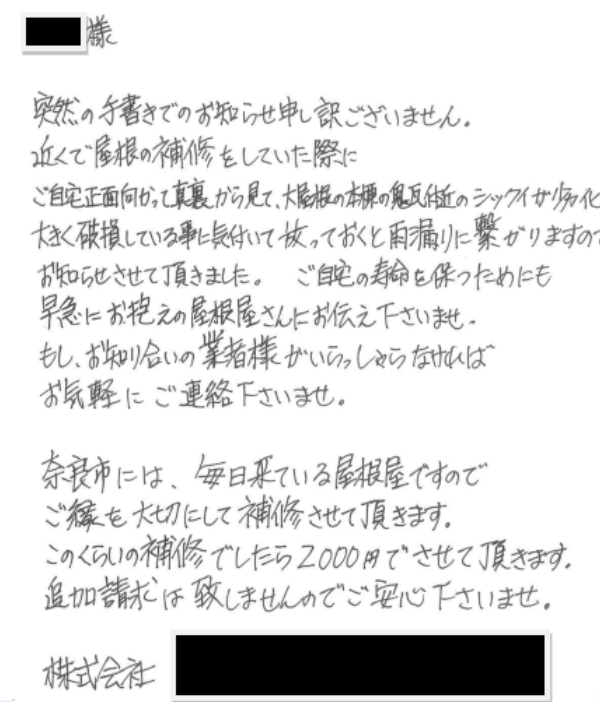 様
突然の手書きでのお知らせ申し訳ございません。
近くで屋根の補修をしていた際に
ご自宅正面向かって真裏から見て、大屋根の本棟の鬼瓦付近のシックイが劣化
大きく破損している事に気付いて放っておくと雨漏りに繋がりますので
お知らせさせて頂きました。 ご自宅の寿命を保つためにも
早急にお抱えの屋根屋さんにお伝え下さいませ.
もし、お知り合いの業者様がいらっしゃらなければ
お気軽にご連絡下さいませ。
奈良市には、毎日来ている屋根屋ですので
ご縁を大切にして補修させて頂きます.
このくらいの補修でしたら2000円でさせて頂きます.
追加請求は致しませんのでご安心下さいませ。
株式会社